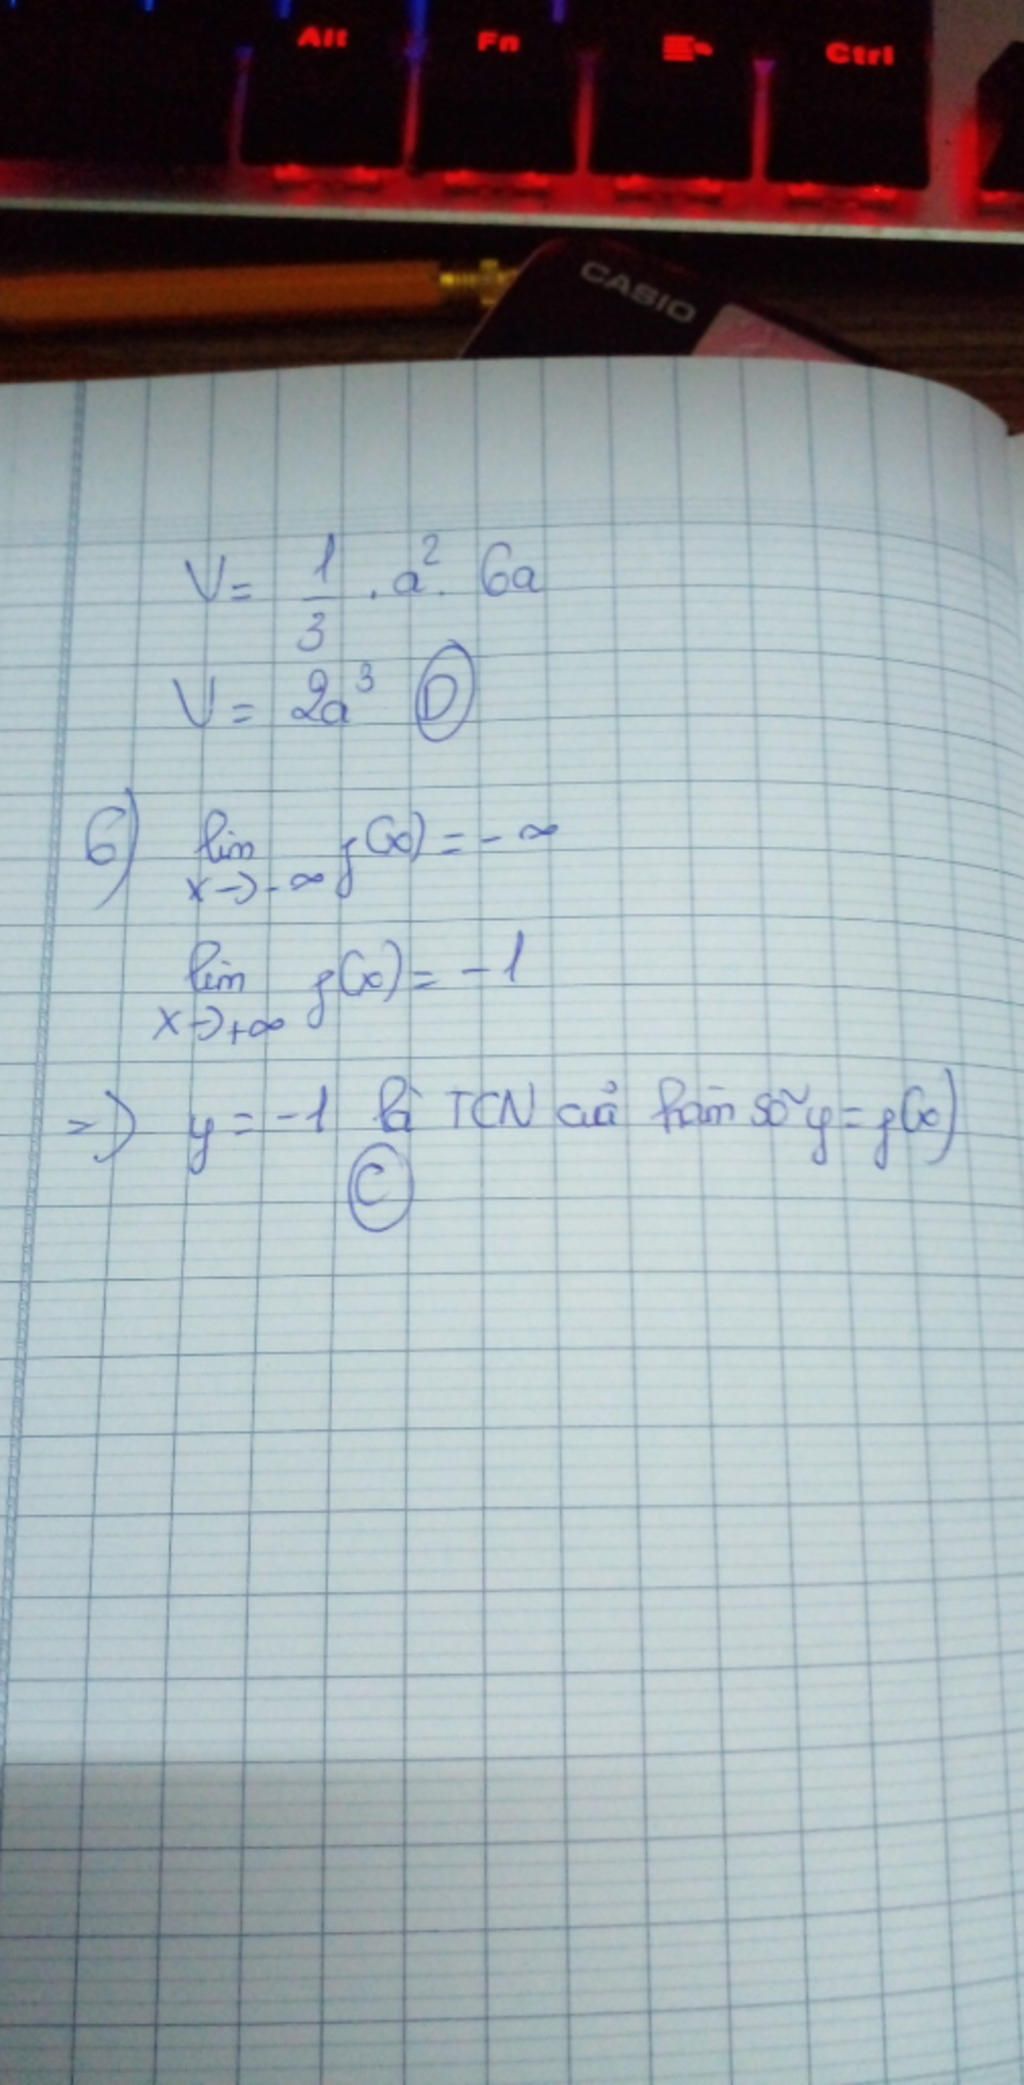 Alt Fn Ctrl
CASIO
V = 1/3 . a². 6a
V = 2a³ D
6) lim f(x) = -∞
x→-∞
lim f(x) = -1
x→+∞
=> y = -1 là TCN của hàm số y = f(x)
C